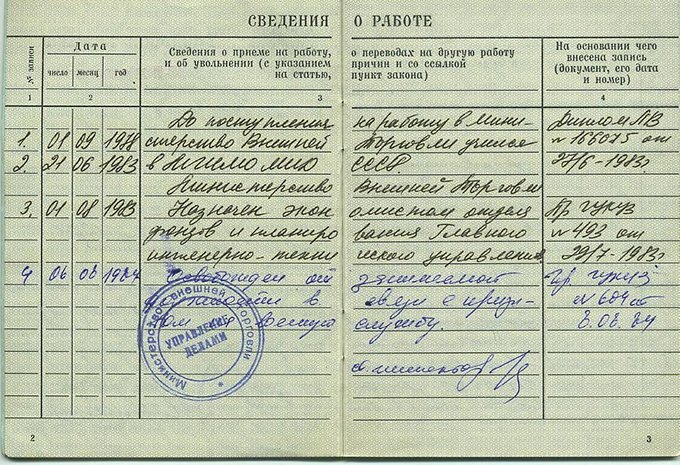 СВЕДЕНИЯ О РАБОТЕ
№ записи
Дата
число месяц год
Сведения о приеме на работу, о переводах на другую работу
и об увольнении (с указанием причин и со ссылкой
на статью, пункт закона)
На основании чего
внесена запись
(документ, его дата
и номер)
1 2 3 4
До поступления на работу в Мини- Диплом
1. 01 09 1978 стерство Внешней Торговли учился № 166075 от
2. 21 06 1983 в СССР. 27/6-1983г
Министерство Внешней Торговли
3. 01 08 1983 Назначен экономистом отдела Пр. ГУКУЗ
фондов и планирования Главного № 493 от
инженерно-технического управления 29/7-1983г
4 Освобожден от занимаемой Пр. ГУКУЗ
должности в связи с призывом № 604 от
службу.
Министерство внешней торговли
УПРАВЛЕНИЕ
ДЕЛАМИ
2 3